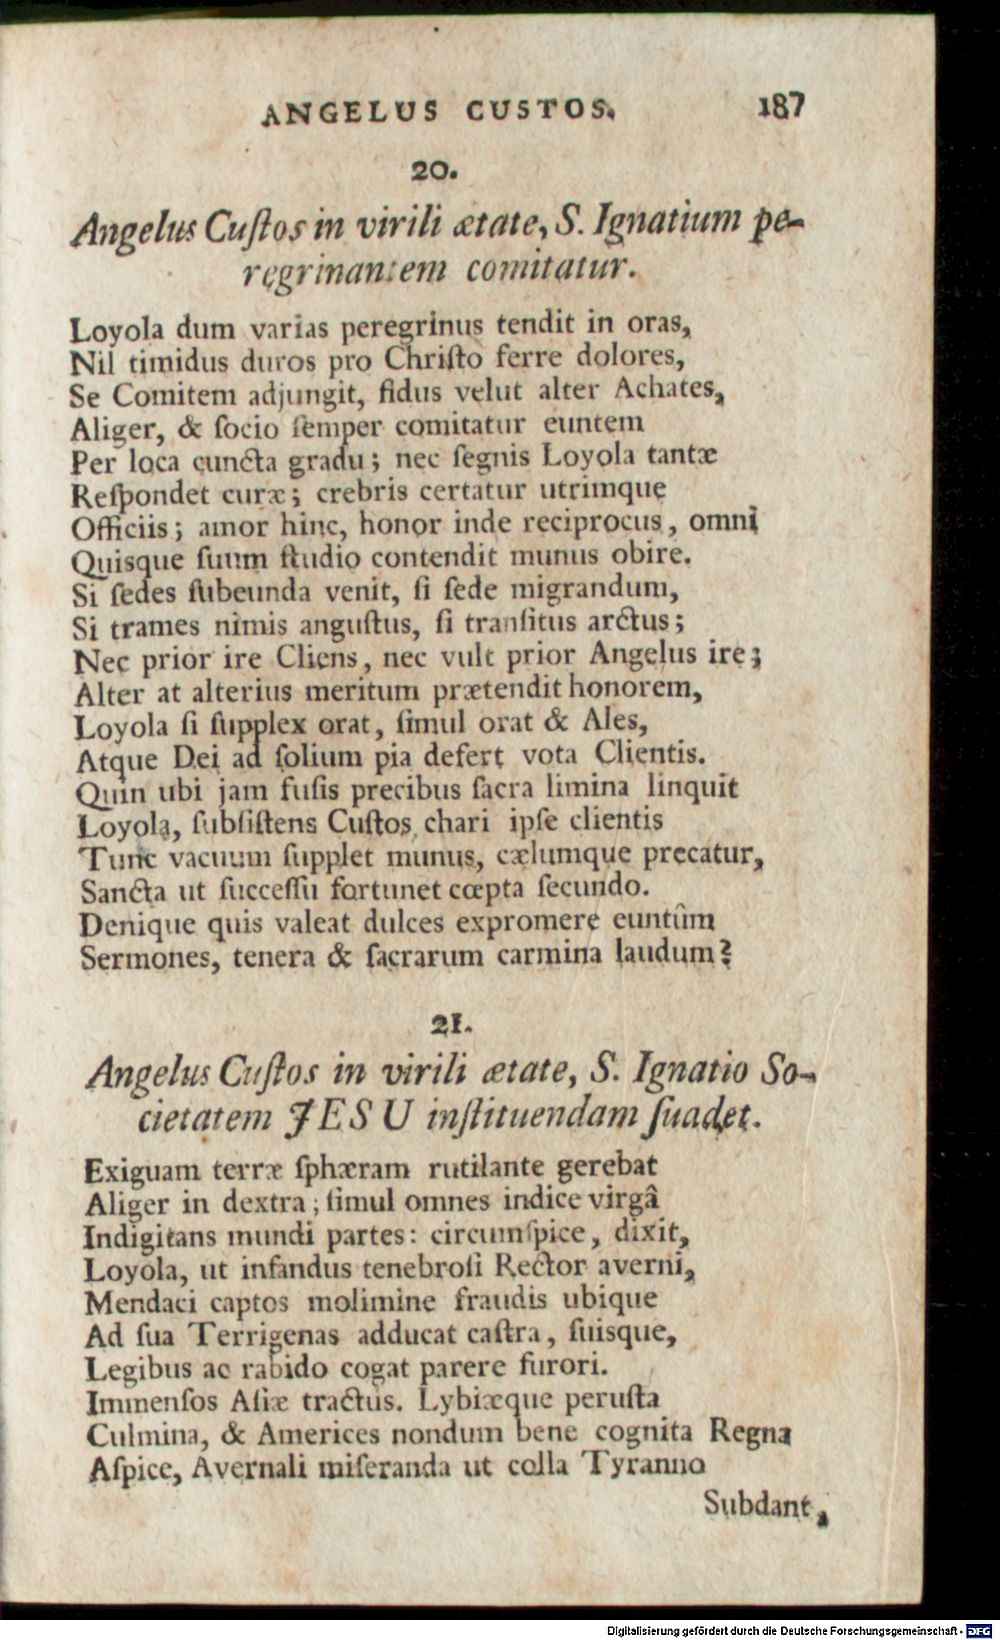 ANGELUS CUSTOS. 187
20.
Angelus Cuſtos in virili ætate, S. Ignatium pe-
regrinantem comitatur.
Loyola dum varias peregrinus tendit in oras,
Nil timidus duros pro Chriſto ferre dolores,
Se Comitem adjungit, fidus velut alter Achates,
Aliger, & ſocio ſemper comitatur euntem
Per loca cuncta gradu; nec ſegnis Loyola tantæ
Reſpondet curæ; crebris certatur utrimque
Officiis; amor hinc, honor inde reciprocus, omni
Quisque ſuum ſtudio contendit munus obire.
Si ſedes ſubeunda venit, ſi ſede migrandum,
Si trames nimis anguſtus, ſi tranſitus arctus;
Nec prior ire Cliens, nec vult prior Angelus ire;
Alter at alterius meritum prætendit honorem,
Loyola ſi ſupplex orat, ſimul orat & Ales,
Atque Dei ad ſolium pia defert vota Clientis.
Quin ubi jam fuſis precibus ſacra limina linquit
Loyola, ſubſiſtens Cuſtos chari ipſe clientis
Tunc vacuum ſupplet munus, cælumque precatur,
Sancta ut ſucceſſu fortunet cœpta ſecundo.
Denique quis valeat dulces expromere euntûm
Sermones, tenera & ſacrarum carmina laudum?
21.
Angelus Cuſtos in virili ætate, S. Ignatio So-
cietatem JESU inſtituendam ſuadet.
Exiguam terræ ſphæram rutilante gerebat
Aliger in dextra; ſimul omnes indice virgâ
Indigitans mundi partes: circumſpice, dixit,
Loyola, ut infandus tenebroſi Rector averni,
Mendaci captos molimine fraudis ubique
Ad ſua Terrigenas adducat caſtra, ſuisque,
Legibus ac rabido cogat parere furori.
Immenſos Aſiæ tractus. Lybiæque peruſta
Culmina, & Americes nondum bene cognita Regna
Aſpice, Avernali miſeranda ut colla Tyranno
Subdant,
Digitalisierung gefördert durch die Deutsche Forschungsgemeinschaft - DFG